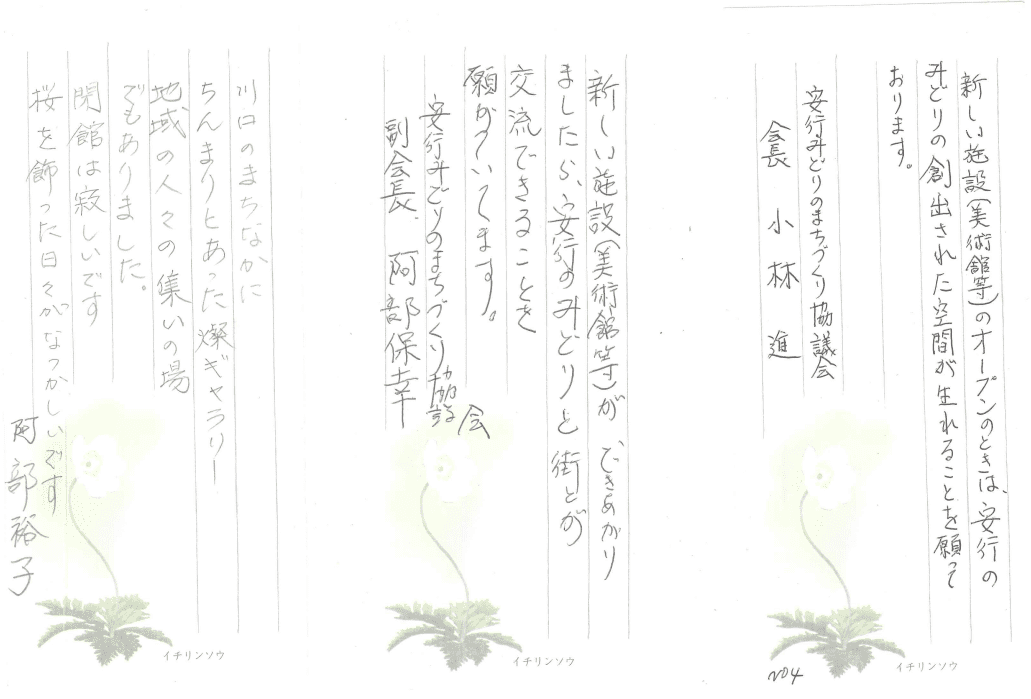 新しい施設(美術館等)のオープンのときは、安行の
みどりの創出された空間が生れることを願って
おります。
安行みどりのまちづくり協議会
会長 小林 進
No4
イチリンソウ
新しい施設(美術館等)ができあがり
ましたら、安行のみどりと街とが
交流できることを
願がっいてます。
安行みどりのまちづくり協議会
副会長 阿部保幸
イチリンソウ
川口のまちなかに
ちんまりとあった燦ギャラリー
地域の人々の集いの場
でもありました。
閉館は寂しいです
桜を飾った日々がなつかしいです
阿部裕子
イチリンソウ